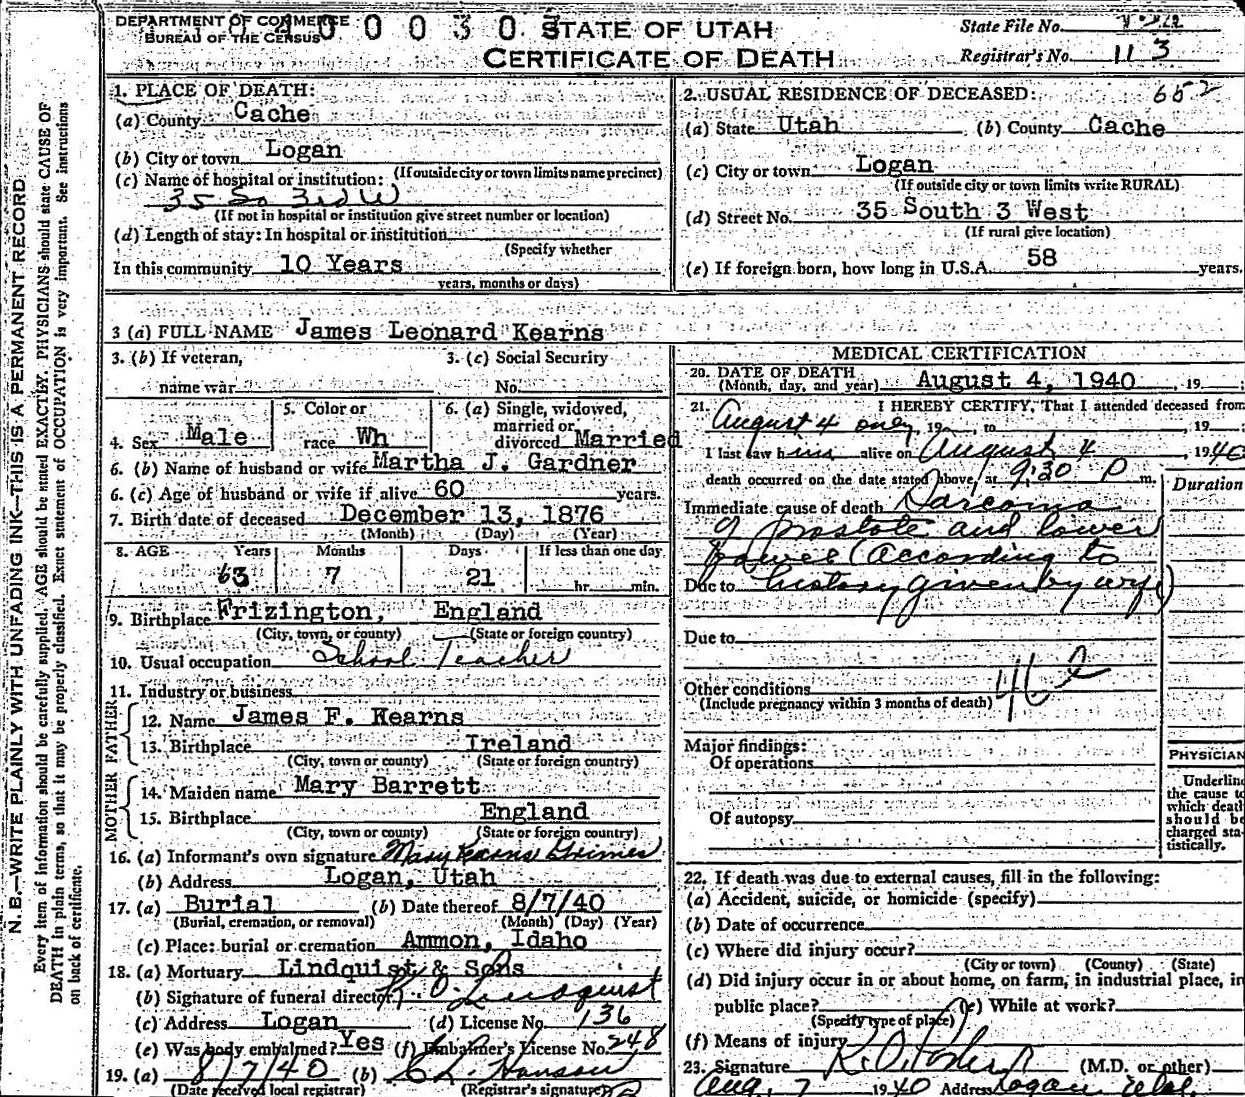 DEPARTMENT OF COMMERCE
BUREAU OF THE CENSUS
0 0 3 0 3
STATE OF UTAH
CERTIFICATE OF DEATH
State File No.
Registrar's No. 113
N. B.—WRITE PLAINLY WITH UNFADING INK—THIS IS A PERMANENT RECORD
Every item of information should be carefully supplied. AGE should be stated EXACTLY. PHYSICIANS should state CAUSE OF
DEATH in plain terms, so that it may be properly classified. Exact statement of OCCUPATION is very important. See instructions
on back of certificate.
1. PLACE OF DEATH:
(a) County Cache
(b) City or town Logan
(If outside city or town limits name precinct)
(c) Name of hospital or institution:
35 So 3rd W
(If not in hospital or institution give street number or location)
(d) Length of stay: In hospital or institution
(Specify whether
In this community 10 Years
years, months or days)
2. USUAL RESIDENCE OF DECEASED: 652
(a) State Utah (b) County Cache
(c) City or town Logan
(If outside city or town limits write RURAL)
(d) Street No. 35 South 3 West
(If rural give location)
(e) If foreign born, how long in U.S.A. 58 years.
3 (a) FULL NAME James Leonard Kearns
3. (b) If veteran,
name war
3. (c) Social Security
No.
4. Sex Male
5. Color or
race Wh
6. (a) Single, widowed,
married or
divorced Married
6. (b) Name of husband or wife Martha J. Gardner
6. (c) Age of husband or wife if alive 60 years.
7. Birth date of deceased December 13, 1876
(Month) (Day) (Year)
8. AGE Years Months Days If less than one day
63 7 21 hr. min.
9. Birthplace Frizington, England
(City, town, or county) (State or foreign country)
10. Usual occupation School Teacher
11. Industry or business
FATHER
12. Name James F. Kearns
13. Birthplace Ireland
(City, town or county) (State or foreign country)
MOTHER
14. Maiden name Mary Barrett
15. Birthplace England
(City, town or county) (State or foreign country)
16. (a) Informant's own signature Mary Kearns Grimes
(b) Address Logan, Utah
17. (a) Burial (b) Date thereof 8/7/40
(Burial, cremation, or removal) (Month) (Day) (Year)
(c) Place: burial or cremation Ammon, Idaho
18. (a) Mortuary Lindquist & Sons
(b) Signature of funeral director Lindquist
(c) Address Logan (d) License No. 136
(e) Was body embalmed? Yes (f) Embalmer's License No. 248
19. (a) 8/7/40 (b) Hanson
(Date received local registrar) (Registrar's signature)
MEDICAL CERTIFICATION
20. DATE OF DEATH
(Month, day, and year) August 4, 1940, 19 ;
21. I HEREBY CERTIFY, That I attended deceased from
August 4 only, 19 , to , 19 ;
I last saw him alive on August 4, 1940
death occurred on the date stated above, at 9:30 P m.
Duration
Immediate cause of death Sarcoma
of prostate and lower
bowel (According to
Due to history given by wife)
Due to
Other conditions
(Include pregnancy within 3 months of death)
Major findings:
Of operations
Of autopsy
PHYSICIAN
Underline
the cause to
which death
should be
charged sta-
tistically.
22. If death was due to external causes, fill in the following:
(a) Accident, suicide, or homicide (specify)
(b) Date of occurrence
(c) Where did injury occur?
(City or town) (County) (State)
(d) Did injury occur in or about home, on farm, in industrial place, in
public place? (e) While at work?
(Specify type of place)
(f) Means of injury
23. Signature (M.D. or other)
Aug. 7 1940 Address Logan Utah